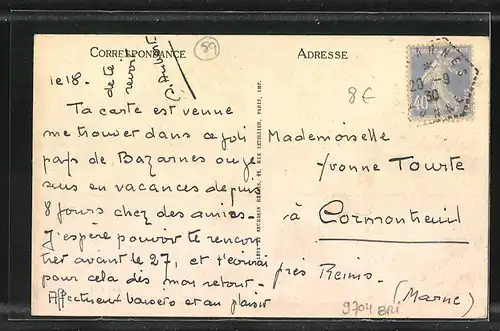 CORRESPONDANCE
89
ADRESSE
le 18 -
Ta carte est venue
me trouver dans ce joli
pays de Bazarnes ou je
suis en vacances depuis
8 jours chez des amies -
J'espère pouvoir te rencon
trer avant le 27, et t'écrirai
pour cela dès mon retour -
Affectueux baisers et au plaisir
de te
revoir
Mademoiselle
Yvonne Tourte
à Cormontreuil
près Reims -
(Marne)
8€
9704 BRI
20 - 9
30
40